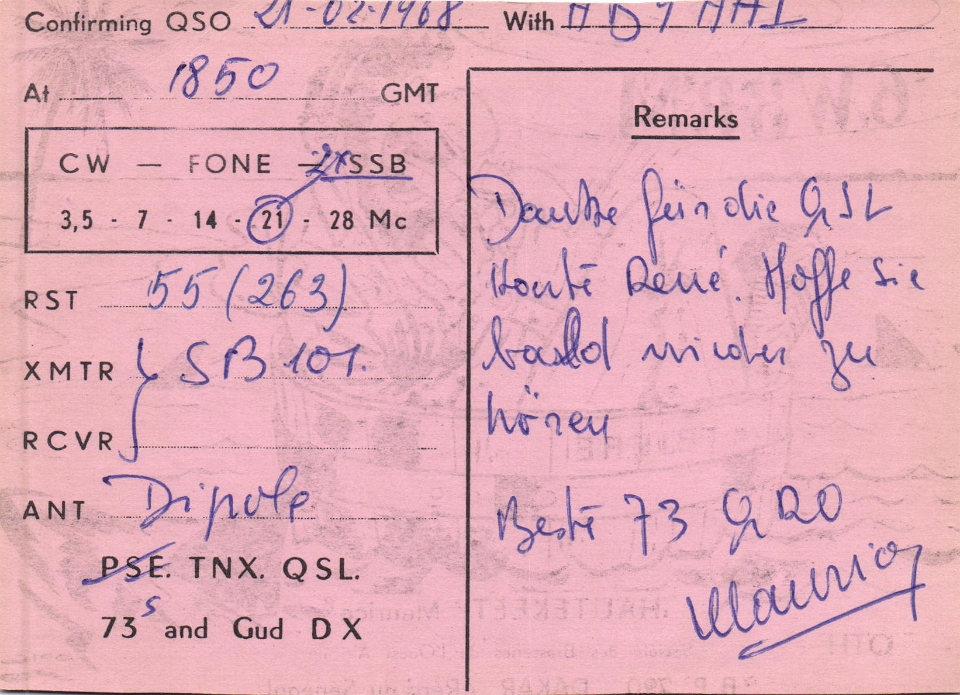 Confirming QSO 21-02-1968 With
At 1850 GMT
CW — FONE — 2xSSB
3,5 - 7 - 14 - 21 - 28 Mc
RST 55 (263)
XMTR SB 101.
RCVR
ANT Dipole
PSE. TNX. QSL.
73s and Gud DX
Remarks
Danke für die QSL
Karte René. Hoffe Sie
bald wieder zu
hören
Beste 73 QRO
Maurice